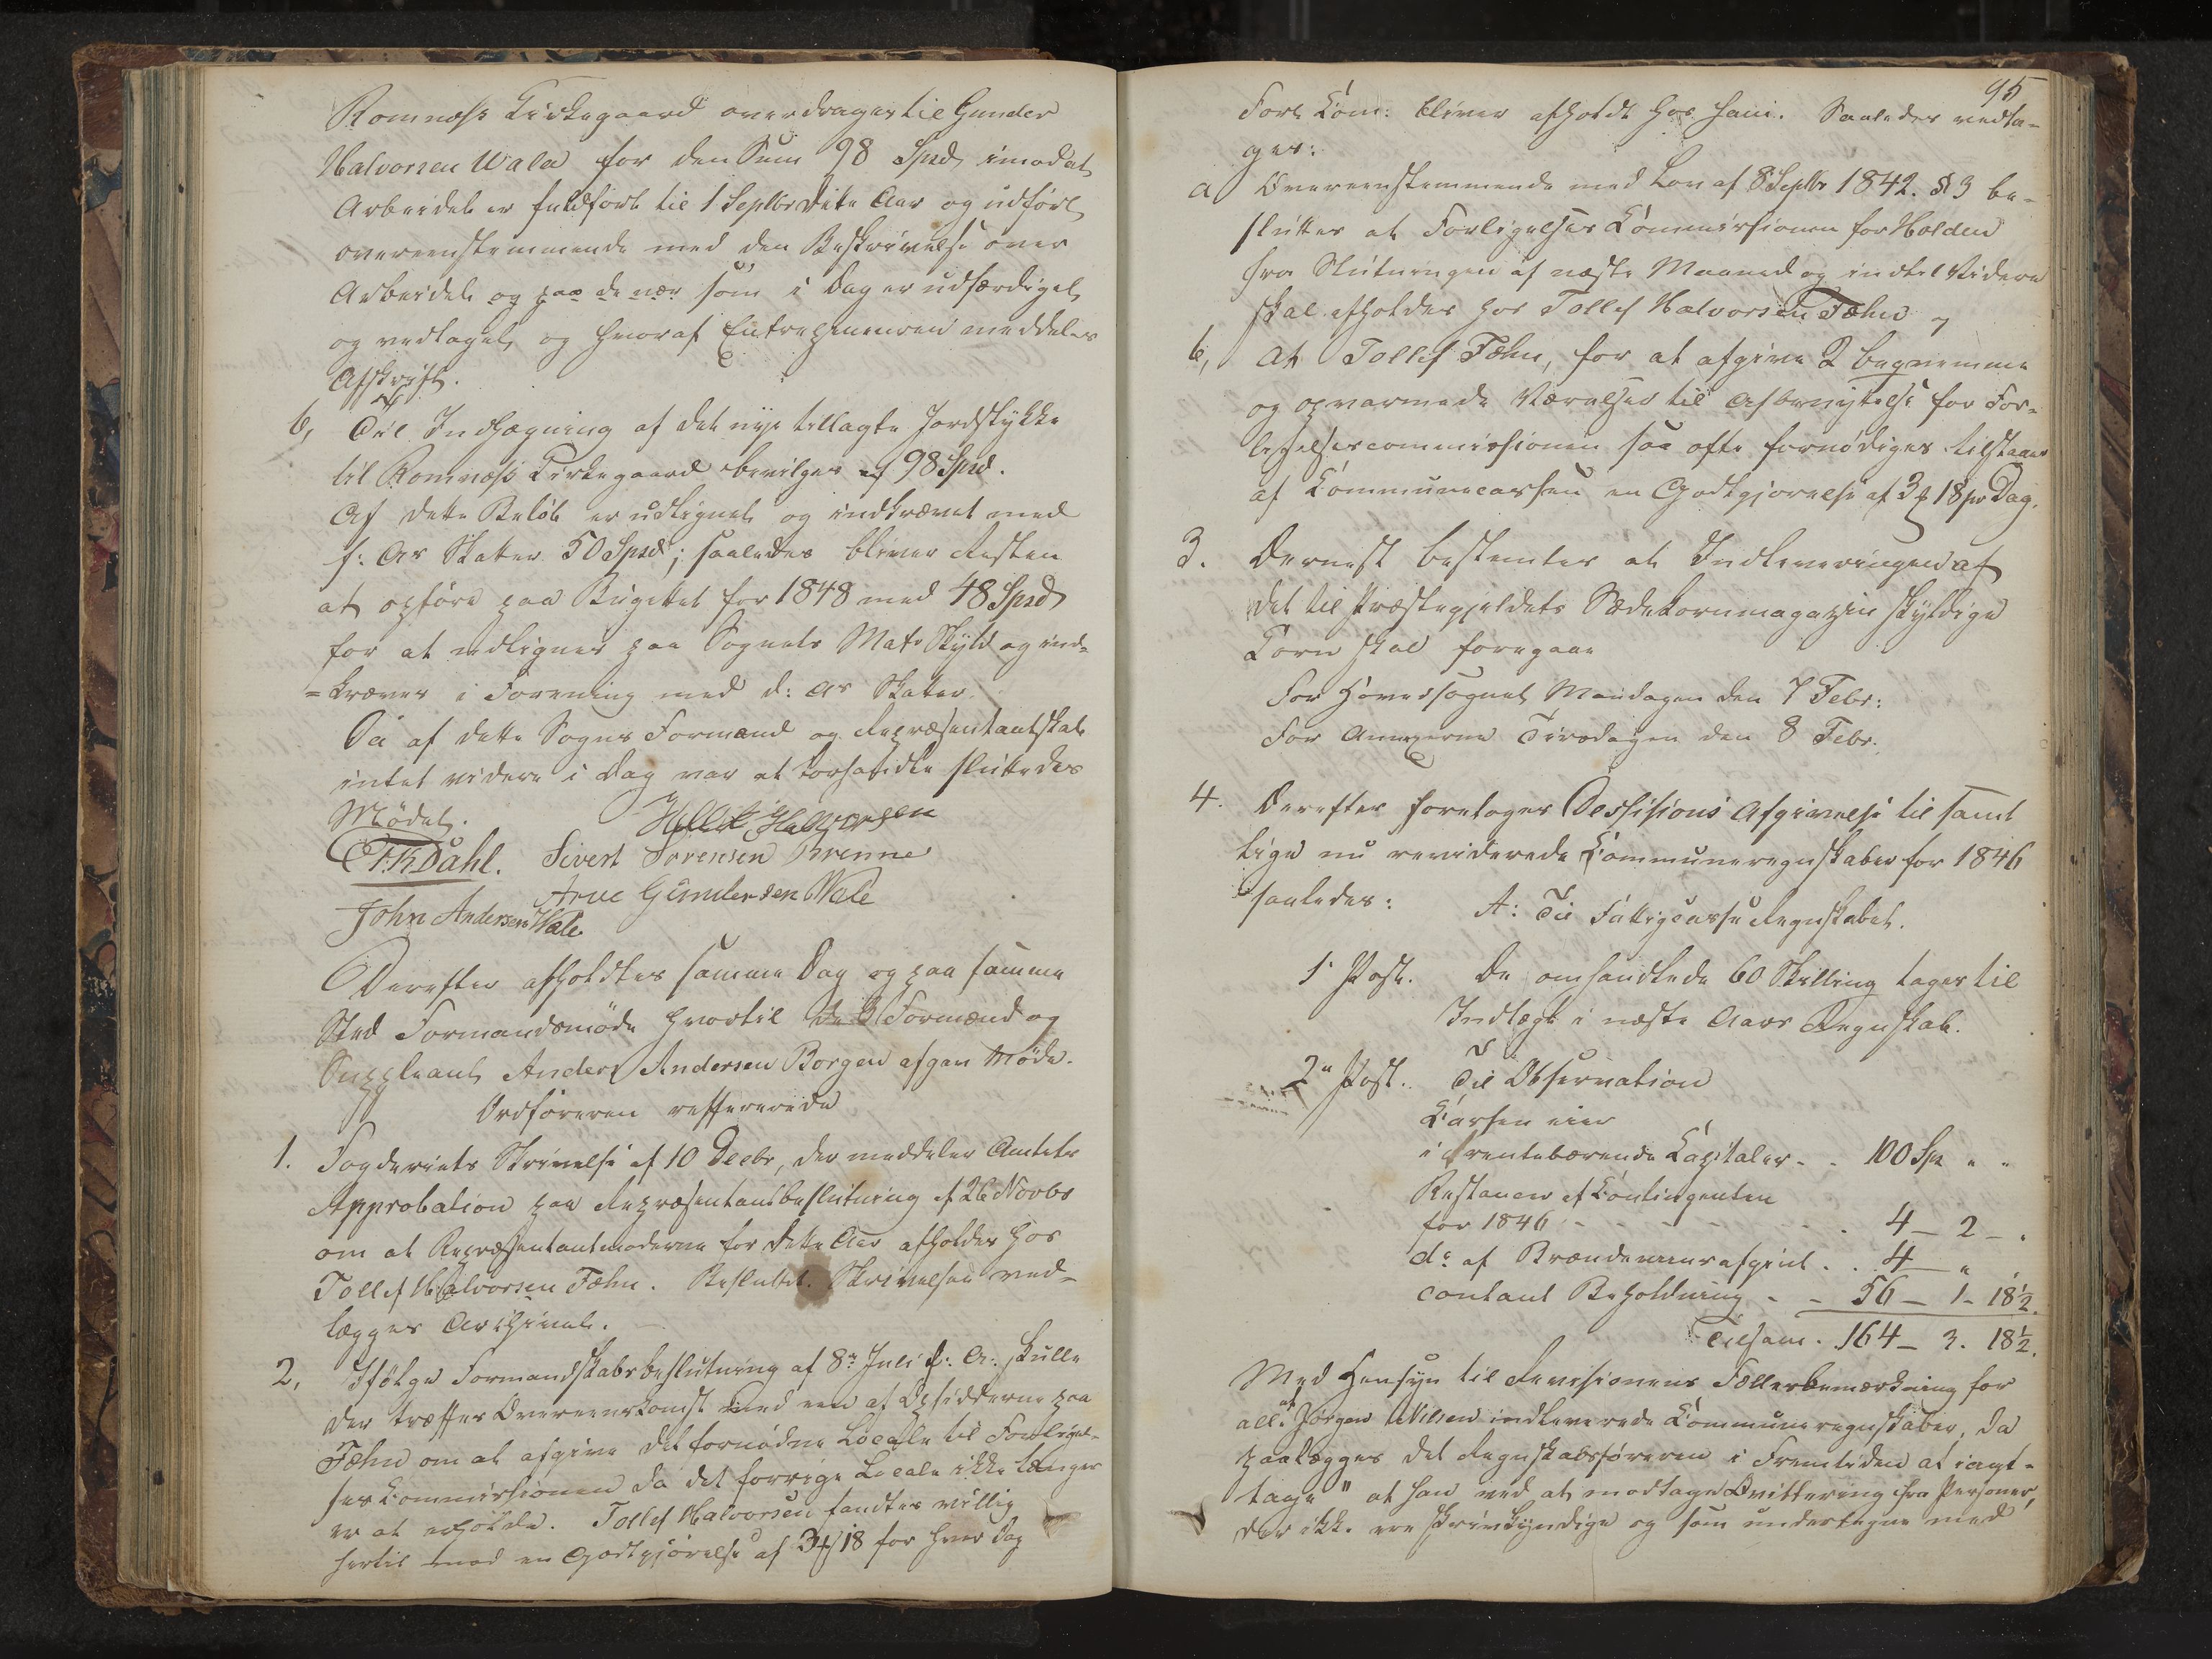 Romnæss Kirkegaard overdrages til Gunder
Halvorsen Wala for den Sum 98 Spd imod at
Arbeidet er fuldført til 1 Septbr dette Aar og udført
overeensstemmende med den Beskrivelse over
Arbeidet og paa de nær som i Dag er udfærdiget
og vedtaget, og hvoraf Entrepreneuren meddeles
Afskrift.
b, Til Indhægning af det nye tillagte Jordstykke
til Romnæss Kirkegaard bevilges af 98 Spd.
Af dette Beløb er udlignet og indkrævet med
f: Ars Skatter 50 Spd; saaledes bliver Resten
at opføre paa Bugettet for 1848 med 48 Spd
for at udlignes paa Sognets Matr Skyld og ind-
-kræves i Forening med d: Ars Skatter.
Da af dette Sogns Formand og Repræsentantskab
intet videre i Dag var at forhandle sluttedes
Mødet.
Hellek Halvorsen
T. K Dahl. Sivert Sørensen Brenne
Arve Gundersen Wale
John Andersen Wale
Derefter afholdtes samme Dag og paa samme
Sted Formandsmøde hvortil de 3 Formænd og
Suppleant Anders Andersen Borgen afgav Møde.
Ordføreren reffererede
1. Fogderiets Skrivelse af 10 Decbr, der meddeler Amtets
Approbation paa Repræsentantbeslutning af 26 Novbr
om at Repræsentantmøderne for dette Aar afholdes hos
Tollef Halvorsen Fæhn. Besluttet. Skrivelsen ved-
lægges Archivet.
2, Ifølge Formandskabsbeslutning af 8de Juli f: A: skulle
der træffes Overeenskomst med een af Opsidderne paa
Fæhn om at afgive det fornødne Locale til Forligel-
ses Kommissionen da det forrige Locale ikke længer
er at erholde. Tollef Halvorsen fandtes villig
hertil mod en Godtgjørelse af 3 ₰ 18 for hver Dag
95
Forl Kom: bliver afholdt hos ham. Saaledes vedta-
ges:
a Overeensstemmende med Lov af 8 Septbr 1842. § 3 be-
sluttes at Forligelses Kommissionen for Holden
fra Slutningen af næste Maaned og indtil Videre
skal afholdes hos Tollef Halvorsen Fæhn
b, At Tollef Fæhn, for at afgive 2 beqvemme
og opvarmede Værelser til Afbenyttelse for For-
ligelsescommissionen saa ofte fornødiges tilstaaes
af Kommunecassen en Godtgjørelse af 3 ₰ 18 pr Dag.
3. Dernest bestemtes at Indleveringen af
det til Præstegjeldets Sædekornmagazin skyldige
Korn skal foregaae
For Hovedsognet Mandagen den 7 Febr:
For Annexerne Tirsdagen den 8 Febr.
4. Derefter foretoges Dessisions Afgivelse til samt
lige nu reviderede Kommuneregnskaber for 1846
saaledes:
A: Til Fattigcasse Regnskabet.
1 Post. De omhandlede 60 Skilling tages til
Indtægt i næste Aars Regnskab.
2n Post. Til Observation
Kassen eier
i rentebærende Kapitaler - - 100 Sp " "
Restancer af Kontingenten
for 1846 - - - - - - - 4 - 2 - "
do af Brændeviinsafgivt . . 4 - "
contant Beholdning - - 56 - 1 - 18½
Tilsam. 164 - 3. 18½.
Med Hensyn til Revisionens Fællesbemærkning for
alle af Jørgen Nilsen indleverede Kommuneregnskaber, da
paalægges det Regnskabsføreren i Fremtiden at iagt-
tage "at han ved at modtage Qvittering fra Personer,
der ikke ere skrivkyndige og som undertegne med